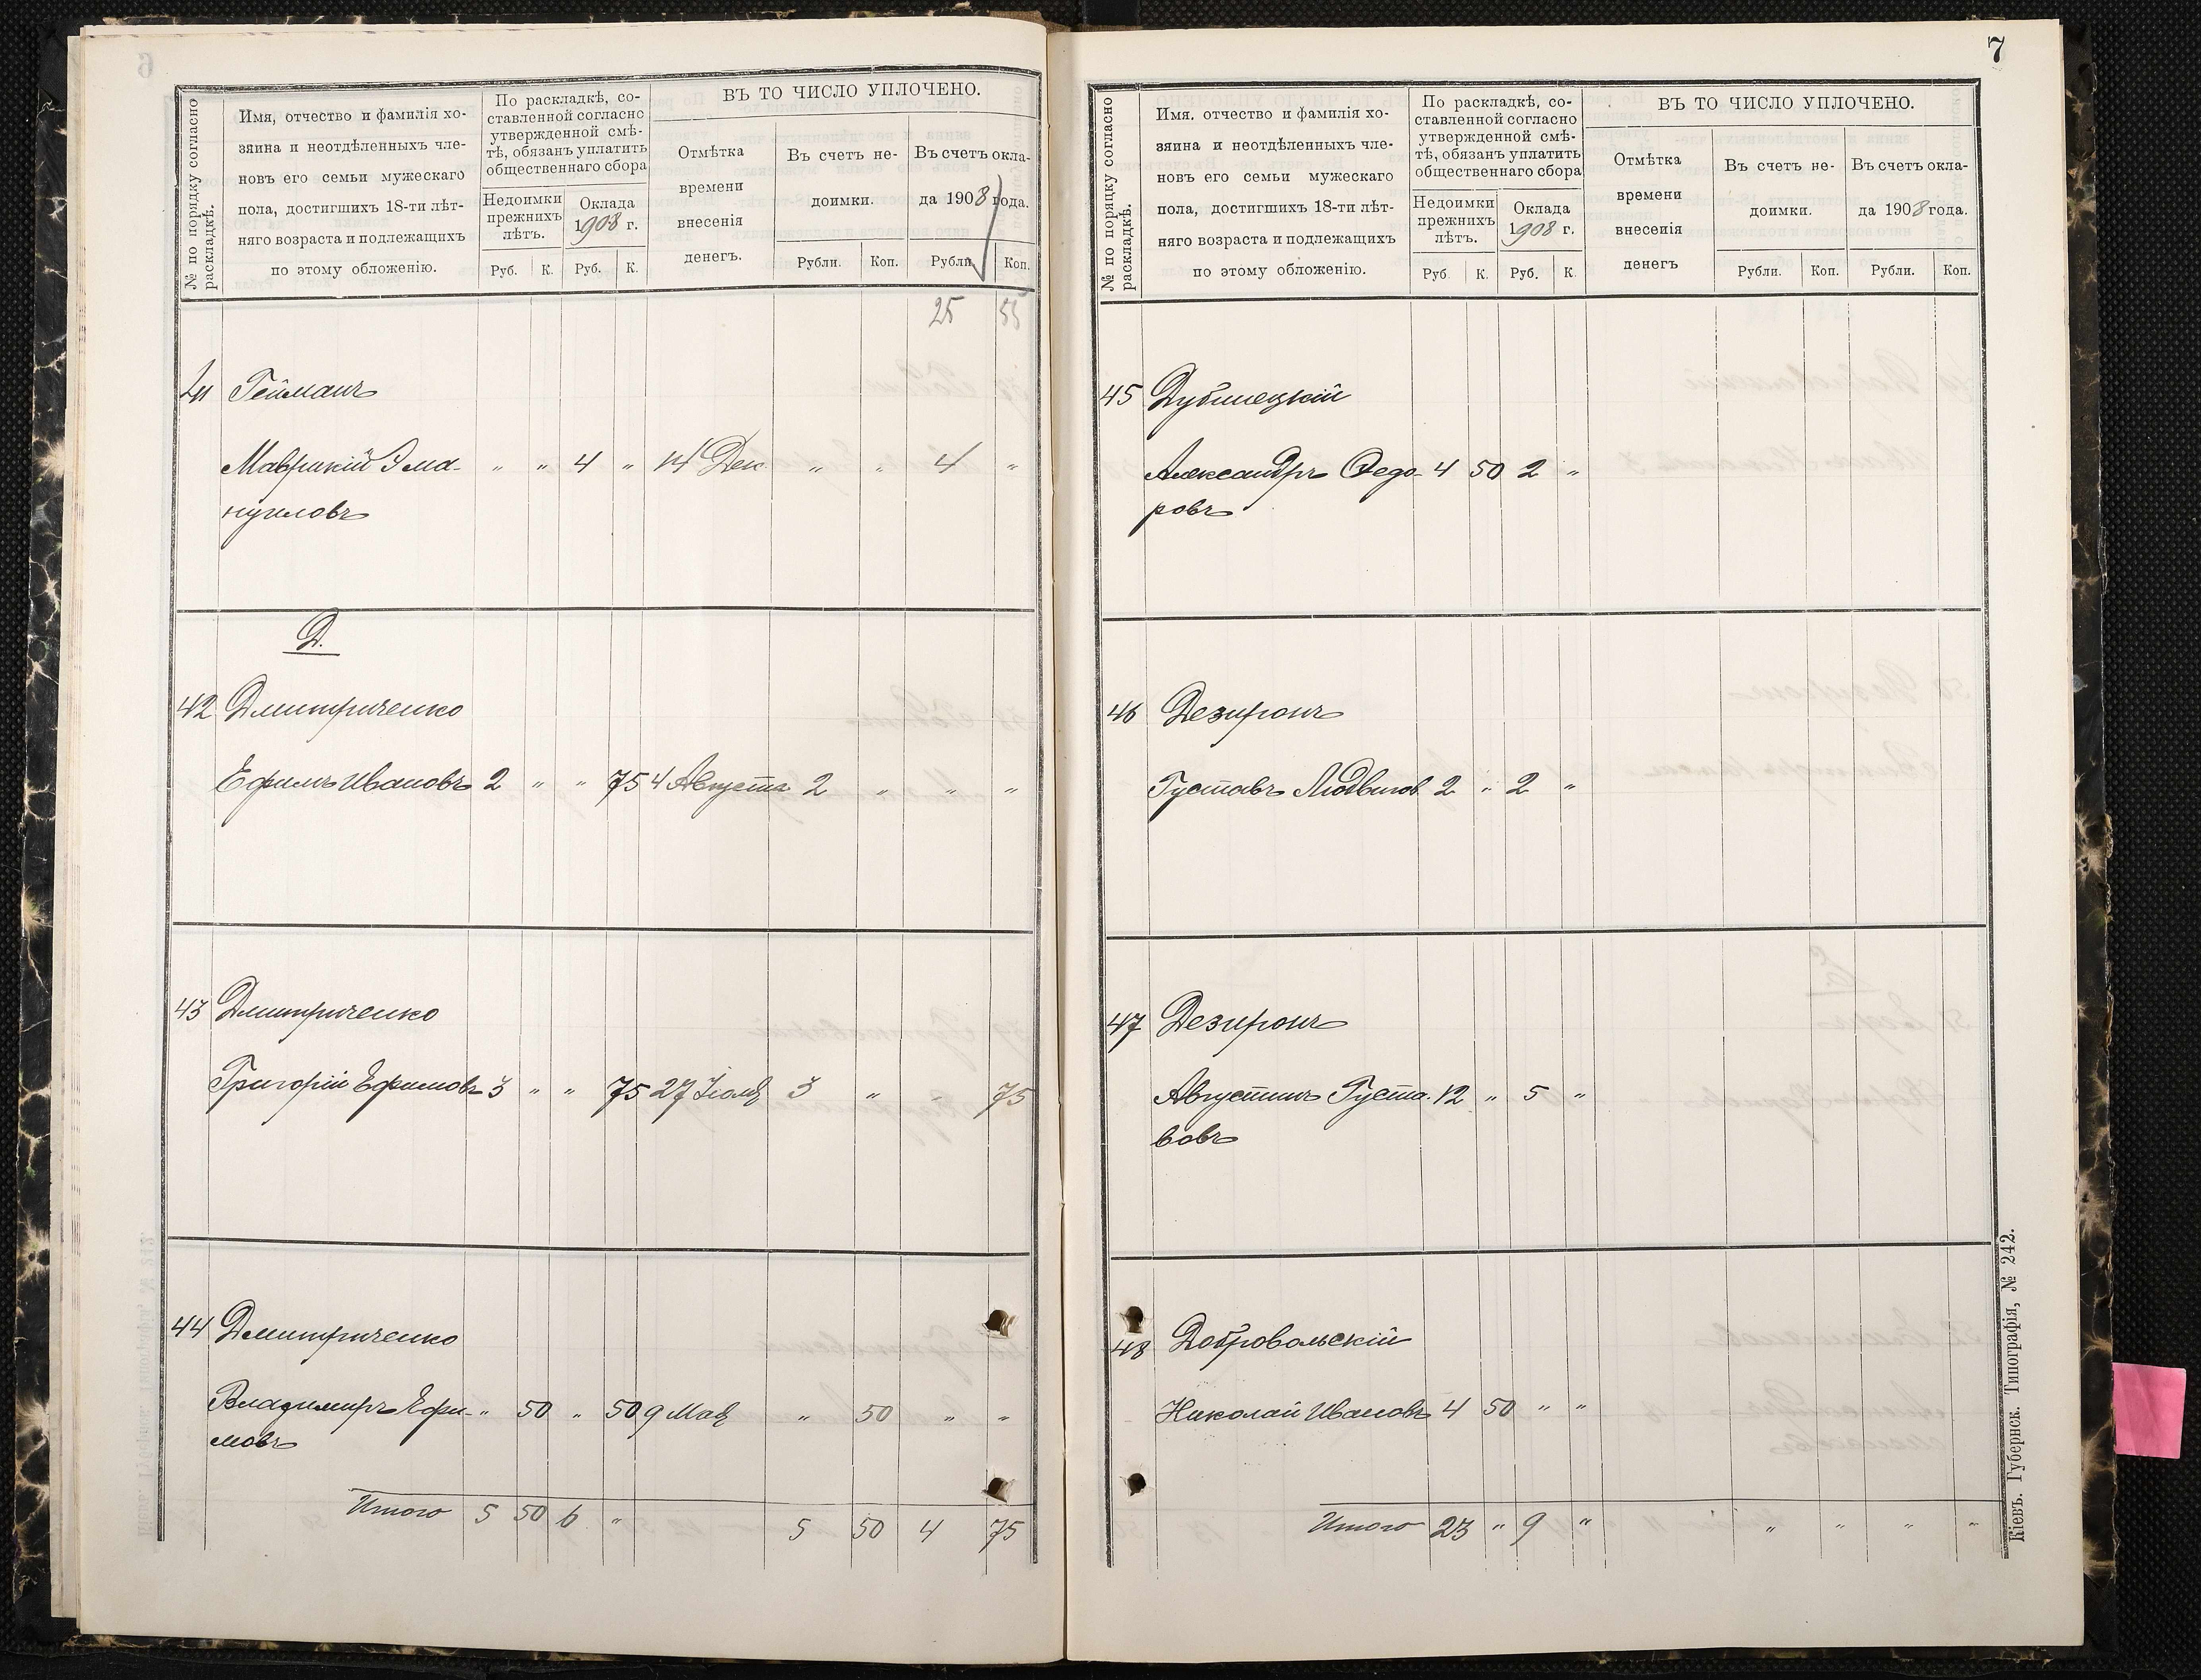 № по порядку согласно раскладкѣ.
Имя, отчество и фамилія хо-
зяина и неотдѣленныхъ чле-
новъ его семьи мужескаго
пола, достигшихъ 18-ти лѣт-
няго возраста и подлежащихъ
по этому обложенію.
По раскладкѣ, со-
ставленной согласно
утвержденной смѣ-
тѣ, обязанъ уплатить
общественнаго сбора
Недоимки
прежнихъ
лѣтъ.
Оклада
1908 г.
Руб. К. Руб. К.
ВЪ ТО ЧИСЛО УПЛОЧЕНО.
Отмѣтка
времени
внесенія
денегъ.
Въ счетъ не-
доимки.
Въ счетъ окла-
да 1908 года.
Рубли. Коп. Рубли. Коп.
25 55
41 Гейманъ
Маврикій Эма- " " 4 " 14 Дек. " " 4 "
нуиловъ
Д.
42 Дмитриченко
Ефимъ Ивановъ 2 " " 75 4 Августа 2 " " "
43 Дмитриченко
Григорій Ефимовъ 3 " " 75 27 Іюля 3 " " 75
44 Дмитриченко
Владимиръ Ефи- " 50 " 50 9 Мая " 50 " "
мовъ
Итого 5 50 6 " 5 50 4 75
7
№ по порядку согласно раскладкѣ.
Имя. отчество и фамилія хо-
зяина и неотдѣленныхъ чле-
новъ его семьи мужескаго
пола, достигшихъ 18-ти лѣт-
няго возраста и подлежащихъ
по этому обложенію.
По раскладкѣ, со-
ставленной согласно
утвержденной смѣ-
тѣ, обязанъ уплатить
общественнаго сбора
Недоимки
прежнихъ
лѣтъ.
Оклада
1908 г.
Руб К. Руб. К.
ВЪ ТО ЧИСЛО УПЛОЧЕНО.
Отмѣтка
времени
внесенія
денегъ
Въ счетъ не-
доимки.
Въ счетъ окла-
да 1908 года.
Рубли. Коп. Рубли. Коп.
45 Дубинецкій
Александръ Федо- 4 50 2 "
ровъ
46 Дезиронъ
Густавъ Людвигов 2 " 2 "
47 Дезиронъ
Августинъ Густа- 12 " 5 "
вовъ
48 Добровольскій
Николай Ивановъ 4 50 " "
Итого 23 " 9 " " " " "
Кіевъ. Губернск. Типографія, № 242.